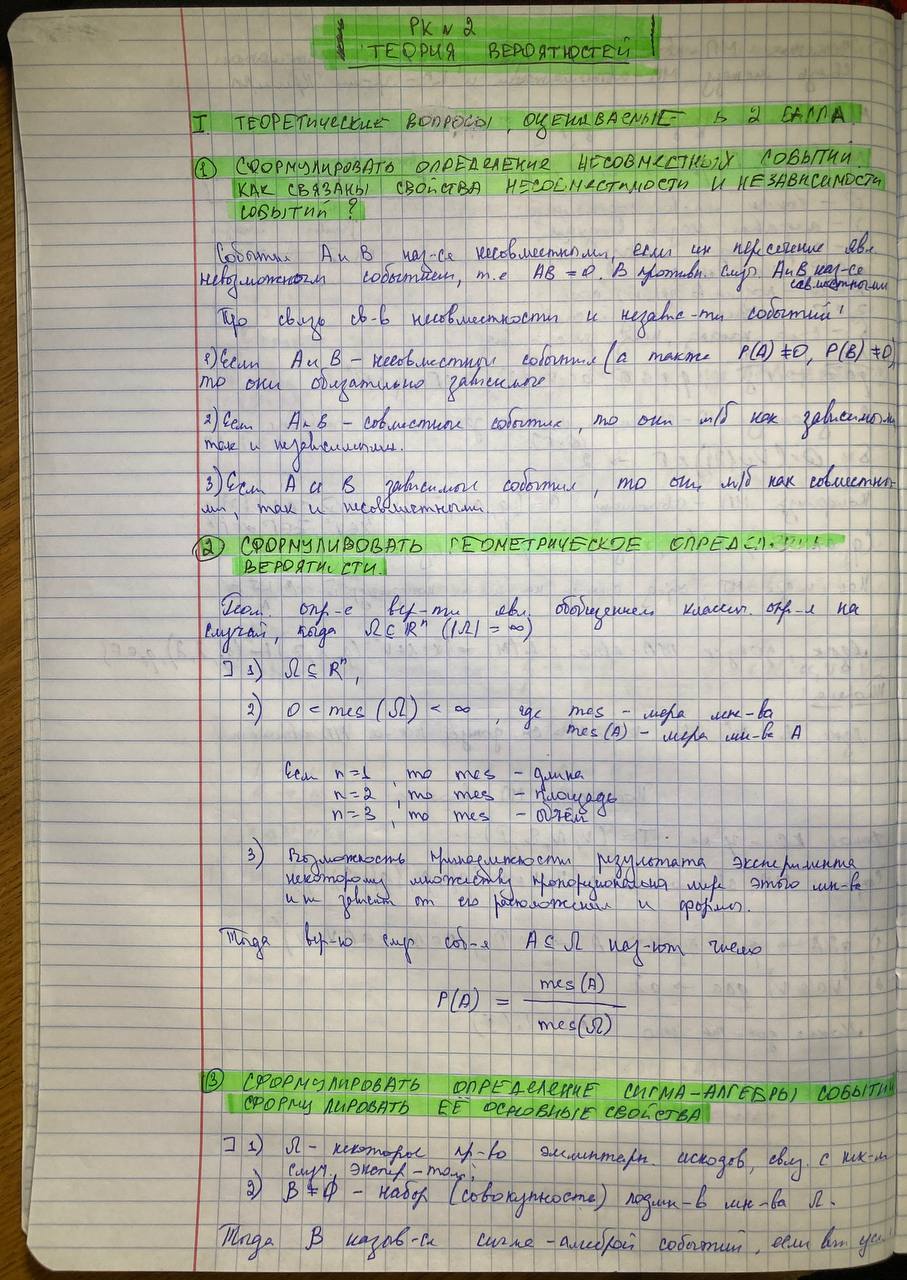 РК № 2
ТЕОРИЯ ВЕРОЯТНОСТЕЙ
I. ТЕОРЕТИЧЕСКИЕ ВОПРОСЫ, ОЦЕНИВАЕМЫЕ В 2 БАЛЛА
① СФОРМУЛИРОВАТЬ ОПРЕДЕЛЕНИЕ НЕСОВМЕСТНЫХ СОБЫТИЙ.
КАК СВЯЗАНЫ СВОЙСТВА НЕСОВМЕСТИМОСТИ И НЕЗАВИСИМОСТИ
СОБЫТИЙ?
События А и В наз-ся несовместными, если их пересечение явл.
невозможным событием, т.е AB = Ø. В противн. случ. А и В наз-ся
совместными
Про связь св-в несовместности и независ-ти событий:
1) Если А и В – несовместные события (а также P(A) ≠ 0, P(B) ≠ 0)
то они обязательно зависимые
2) Если А и В – совместные события, то они м/б как зависимыми
так и независимыми.
3) Если А и В зависимые события, то они м/б как совместны-
ми, так и несовместными.
② СФОРМУЛИРОВАТЬ ГЕОМЕТРИЧЕСКОЕ ОПРЕДЕЛ
ВЕРОЯТНОСТИ.
Геом. опр-е вер-ти явл. обобщением классич. опр-я на
случай, когда Ω ⊆ Rⁿ (|Ω| = ∞)
] 1) Ω ⊆ Rⁿ,
2) 0 < mes (Ω) < ∞, где mes – мера мн-ва
mes(A) – мера мн-ва А
Если n=1, то mes – длина
n=2, то mes – площадь
n=3, то mes – объём
3) Возможность принадлежности результата эксперимента
некоторому множеству пропорциональна мере этого мн-ва
и не зависит от его расположения и формы.
Тогда вер-ю случ соб-я А ⊆ Ω наз-ют число
P(A) = mes(A) / mes(Ω)
③ СФОРМУЛИРОВАТЬ ОПРЕДЕЛЕНИЕ СИГМА-АЛГЕБРЫ СОБЫТИЙ
СФОРМУЛИРОВАТЬ ЕЁ ОСНОВНЫЕ СВОЙСТВА
] 1) Ω – некоторое пр-во элементарн. исходов, связ. с нек-м
случ. экспер-том;
2) B ≠ Ø – набор (совокупность) подмн-в мн-ва Ω.
Тогда В назыв-ся сигма-алгеброй событий, если вып усл